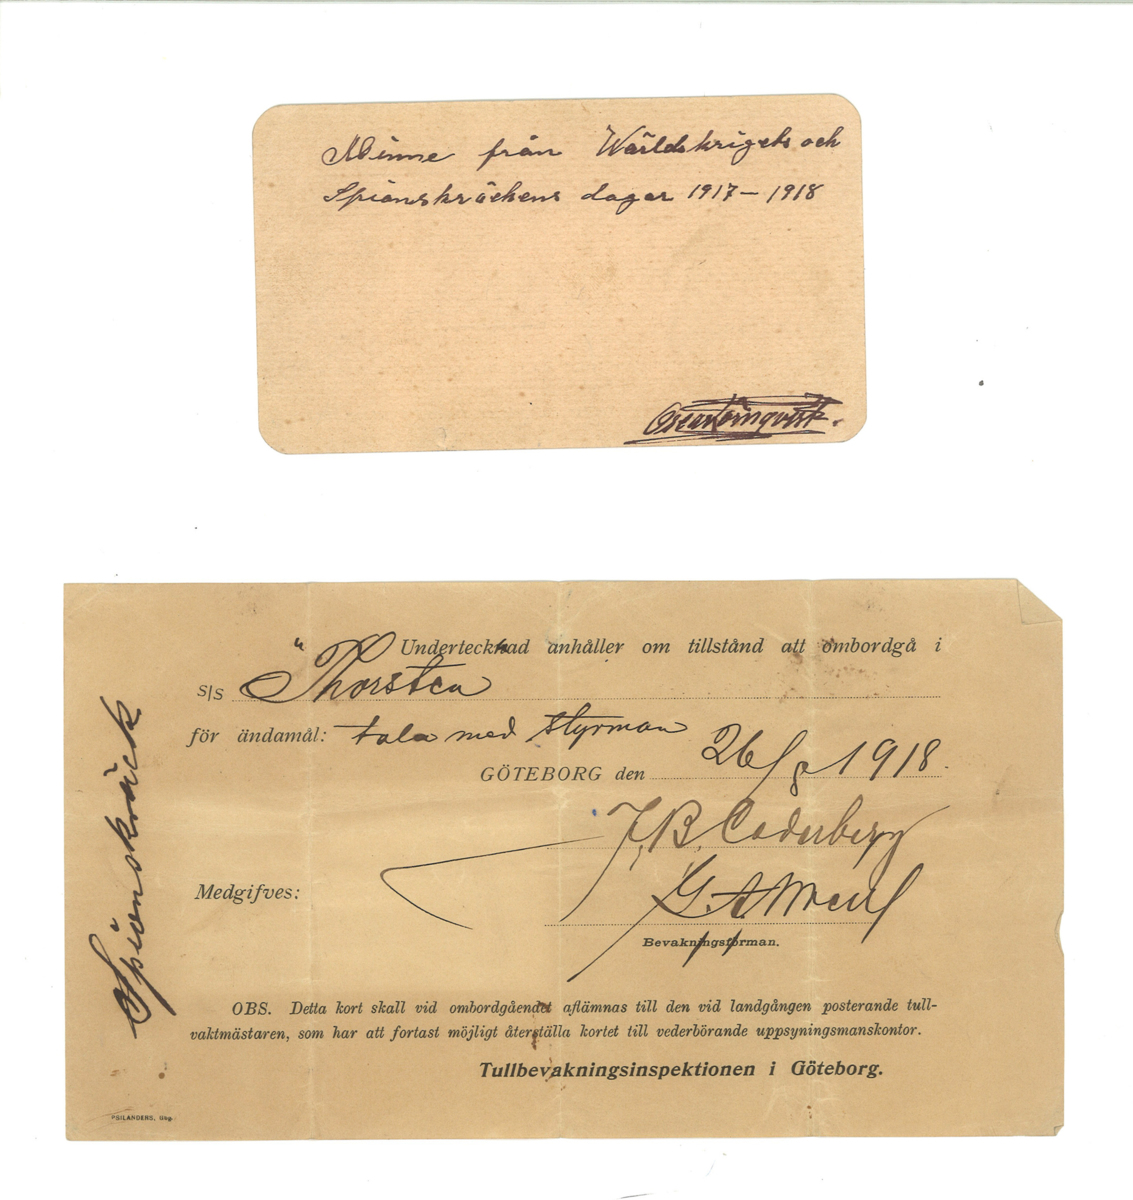 Minne från Världskrigets och
Spionskräckens dagar 1917-1918
Oscar Lönnqvist.
Undertecknad anhåller om tillstånd att ombordgå i
s/s "Thorsten
för ändamål: tala med styrman
GÖTEBORG den 26/8 1918.
J. B. Cederberg
Medgifves:
G. A.
Bevakningsförman.
OBS. Detta kort skall vid ombordgåendet aflämnas till den vid landgången posterande tull-
vaktmästaren, som har att fortast möjligt återställa kortet till vederbörande uppsyningsmanskontor.
Tullbevakningsinspektionen i Göteborg.
PSILANDERS, Gbg.
Spionskräck